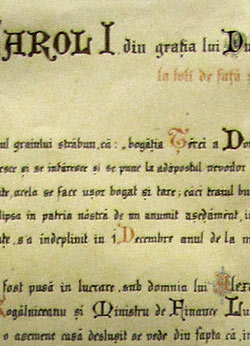 CAROL I, din grația lui Du
la toți de față ș
ul graiului străbun, că: „bogăția Țĕrei a Do
esce și se întăresce și se pune la adăpostul nevoilor
ite, acela se face ușor bogat și tare; căci traiul bu
lipsa in patria nóstră de un anumit așeḑămênt, in
te, s'a indeplinit in 1, Decembre anul de la in
fost pusă in lucrare, sub domnia lui Alexa
Kogălniceanu și Ministru de Finance Lu
o asemene casă deslușit se vede din fapta că in